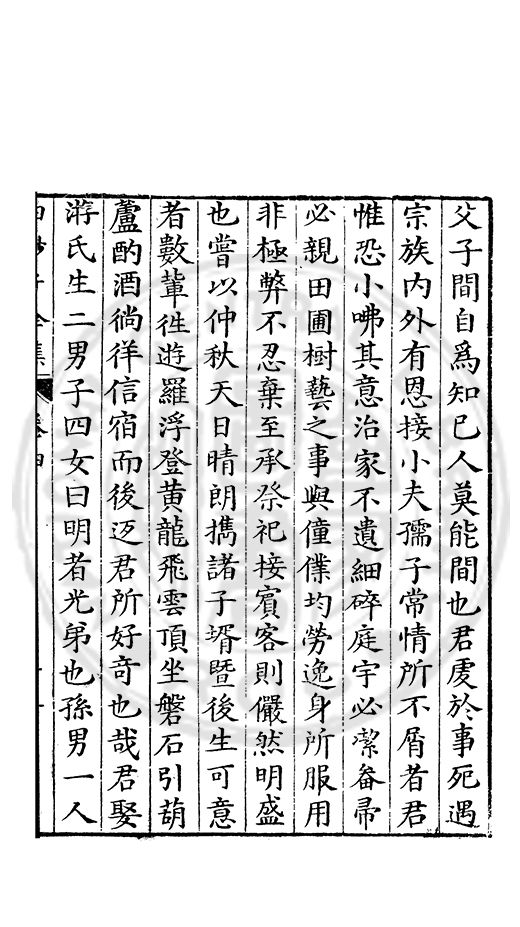 父子間自爲知己人莫能間也君處於事死遇
宗族内外有恩接小夫孺子常情所不屑者君
惟恐小咈其意治家不遺細碎庭宇必潔畚帚
必親田圃樹藝之事與僮僕均勞逸身所服用
非極弊不忍棄至承祭祀接賓客則儼然明盛
也嘗以仲秋天日晴朗攜諸子壻暨後生可意
者數輩徃遊羅浮登黄龍飛雲頂坐磐石引葫
蘆酌酒徜徉信宿而後返君所好竒也哉君娶
游氏生二男子四女曰明者光弟也孫男一人